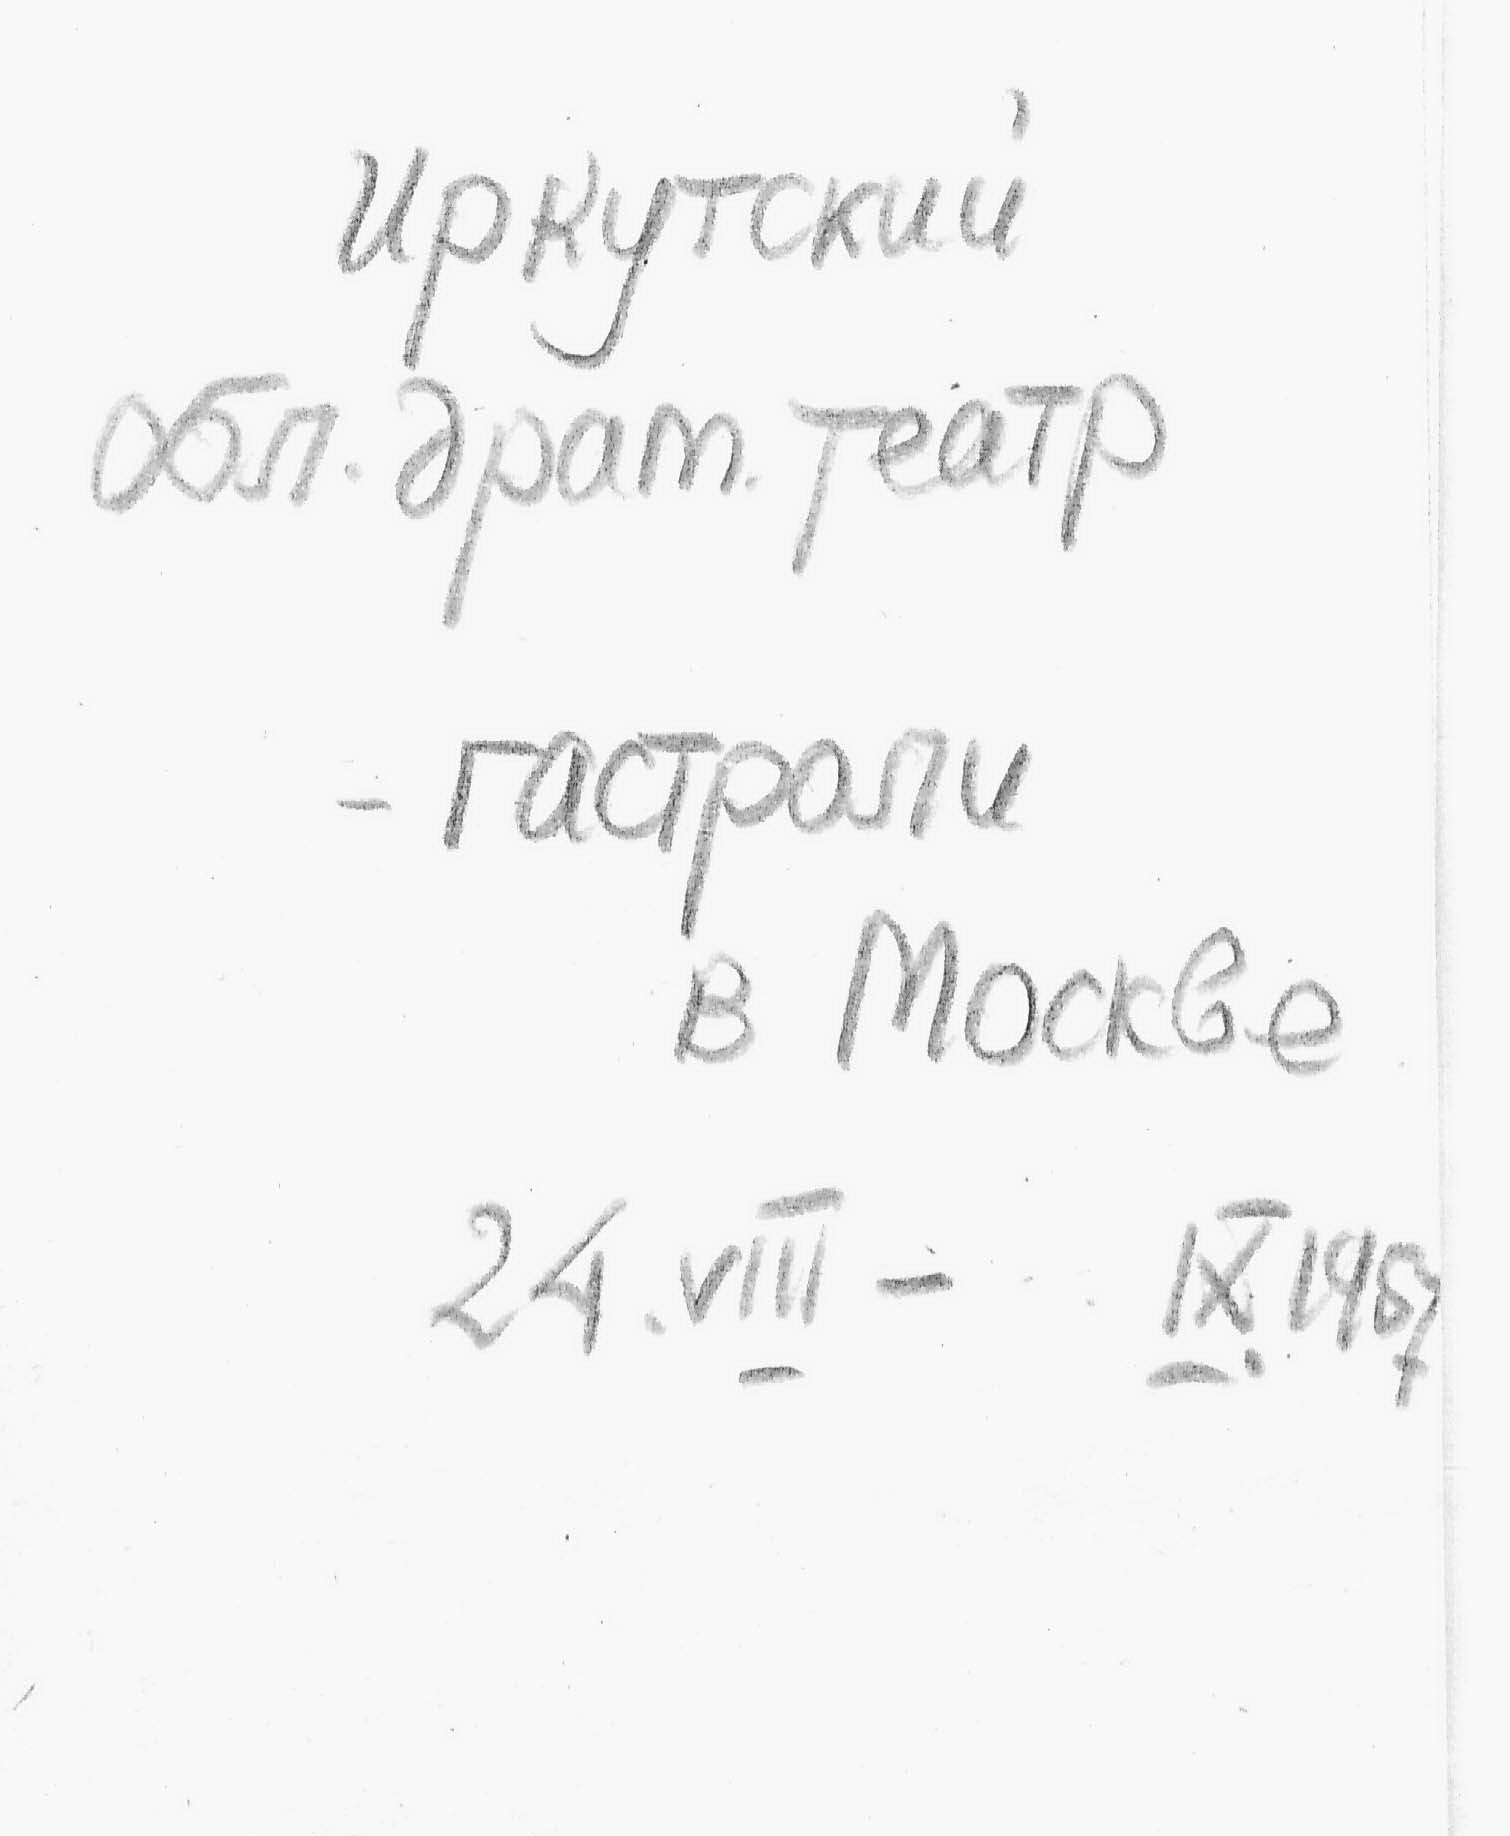 Иркутский
обл. драм. театр
- гастроли
в Москве
24.VIII - IX.1967